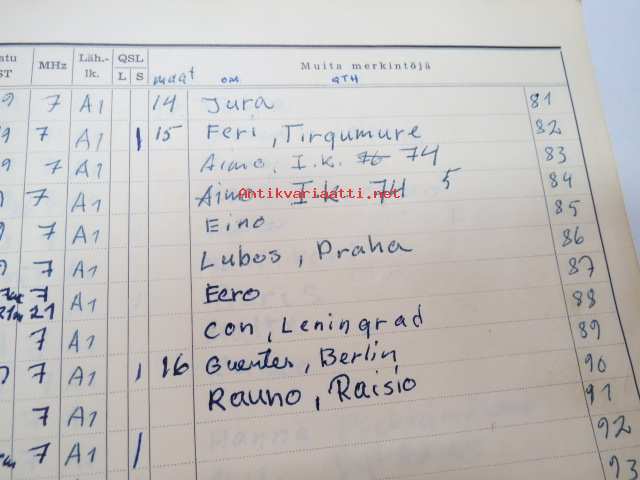 atu MHz Läh.- QSL Muita merkintöjä
ST lk. L S maat om QTH
9 7 A1 14 Jura 81
9 7 A1 15 Feri, Tirgumure 82
9 7 A1 Aimo, I.K. 76 74 83
7 A1 Aimo I.K 74 5 84
7 A1 Eino 85
7 A1 Lubos, Praha 86
7 21 A1 Eero 87
7 A1 Con, Leningrad 88
7 A1 16 Guenter, Berlin 89
7 A1 Rauno, Raisio 90
7 A1 91
92
93
Antikvariaatti.net